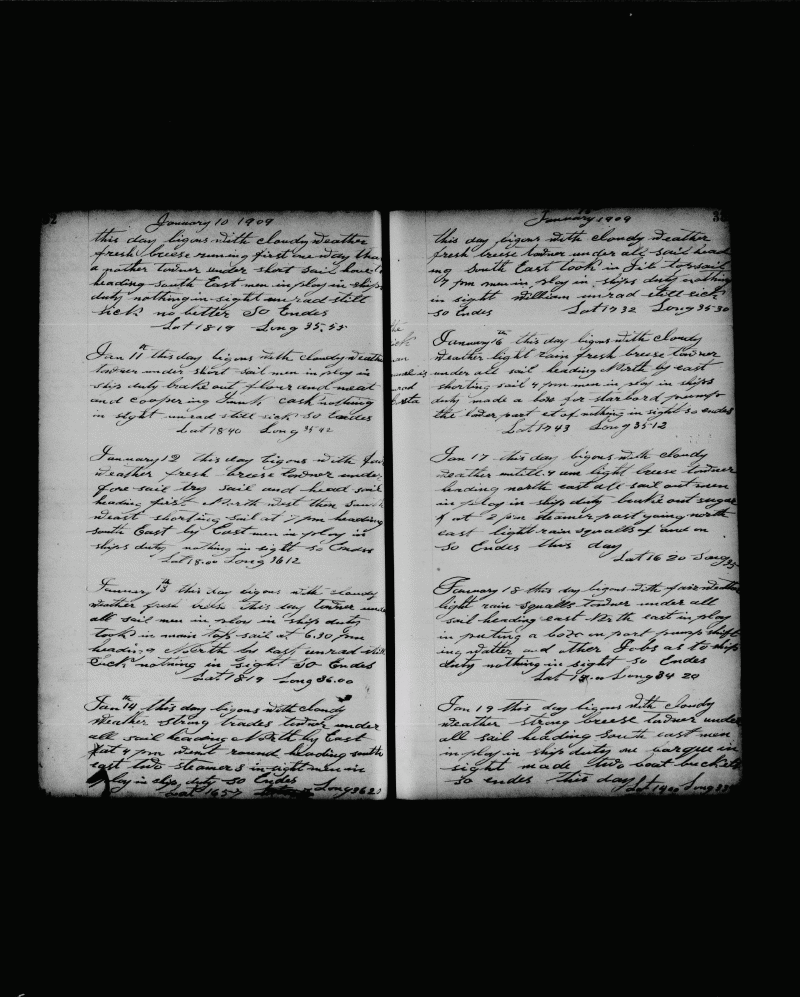 January 10 1909
this day bigons with cloudy weather
fresh breese runing first one way than
a nother towner under short sail hove
heading South East men in play in ships
duty nothing in sight unrad still
sick no better So Endes
Lat 18-19 Long 35-55
Jan 11th this day bigons with cloudy weathe
towner under short sail men in play in
ships duty brake out flour and meat
and coopering cask nothing
in sight unrad still sick So Endes
Lat 18-40 Long 35-42
January 12 this day bigons with
weather fresh breese towner unde
fore sail try sail and head sail
heading first North West then
weast shorting sail at 7 pm heading
South East by East men in play in
ships duty nothing in sight So Endes
Lat 18-00 Long 36 12
January 13th this day bigons with cloudy
weather fresh this day towner unde
all sail men in play in ships duty
took in main top sail at 6.30 pm
heading North by East unrad still
Sick nothing in Sight So Endes
Lat 18-19 Long 36.00
Jan 14th this day bigons with cloudy
weather strong trades towner under
all sail heading North by East
at 4 pm went round heading south
east two steamers in sight men in
play in ships duty So Endes
Lat 16-57 Long 36 20
33
January 1909
this day bigons with cloudy weather
fresh breese towner under all sail head
ing South East took in topsail
7 pm men in play in ships duty nothing
in sight William unrad still sick
So Endes Lat 17 32 Long 35-30
January 16th this day bigons with cloudy
weather light rain fresh breese towner
under all sail heading North by east
shorting sail 4 pm men in play in ships
duty made a box for starbord pump
the later part of nothing in sight so endes
Lat 17 43 Long 35-12
Jan 17 this day bigons with cloudy
weather untill 4 am light breese towner
heading north east all sail out men
in play in ship duty brake out sugar
at 2 pm steamer past going north
east light rain squalls of and on
So Endes this day
Lat 16 20 Long 35
January 18 this day bigons with fair weather
light rain squalls towner under all
sail heading east North east in play
in puting a box on port pump shift
ing watter and other Jobs as to ship
duty nothing in sight So Endes
Long 34 20
Jan 19 this day bigons with cloudy
weather strong breese towner under
all sail heading South east men
in play in ship duty one barque in
sight made two boat buckets
so endes this day